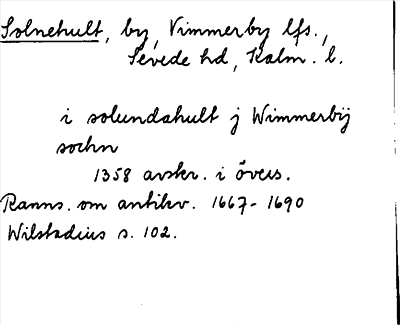 Solnehult, by, Vimmerby lfs.,
Sevede hd, Kalm. l.
i solundahult j Wimmerbij
sochn
1358 avskr. i övers.
Ranns. om antikv. 1667-1690
Wilstadius s. 102.